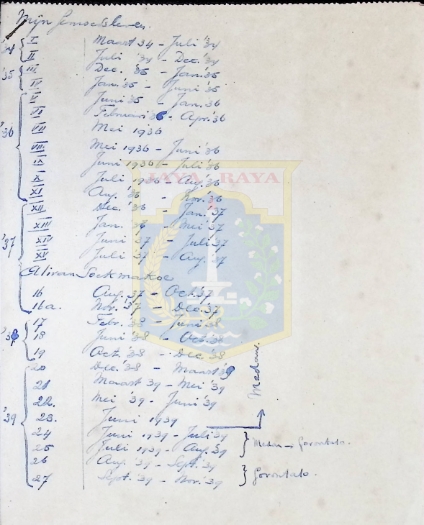 Mijn
'34 I Maart 34 - Juli '34
II Juli '34 - Dec. '34
'35 III Dec. '35 - Jan. '35
IV Jan '35 - Juni '35
Juni '35 - Jan. '36
'36 Februari '36 - Apr. '36
VII Mei 1936
VIII Mei 1936 - Juni '36
Juni 1936 - Juli '36
Juli 1936 - Aug '36
XI Aug. '36 - Nov. '36
XII Dec. '36 - Jan. '37
'37 XIII Jan. - Mei '37
XIV Juni 37 - Juli '37
XV Juli 37 - Aug '37
Aliran
16 Aug. 37 - Oct '37
16a. Nov. 37 - Dec. '37
'38 17 Febr. '38 - Juni '38
18 Juni '38 - Oct. '38
19 Oct. '38 - Dec. '38
20 Dec. '38 - Maart '39
21 Maart 39 - Mei '39
22. Mei '39 - Juni '39
'39 23. Juni 1939
24 Juni 1939 - Juli 39
25 Juli 1939 - Aug. 39
26 Aug. '39 - Sept. 39
27 Sept. 39 - Nov. '39
Medan.
Medan - Gorontalo.
Gorontalo.
JAYA RAYA